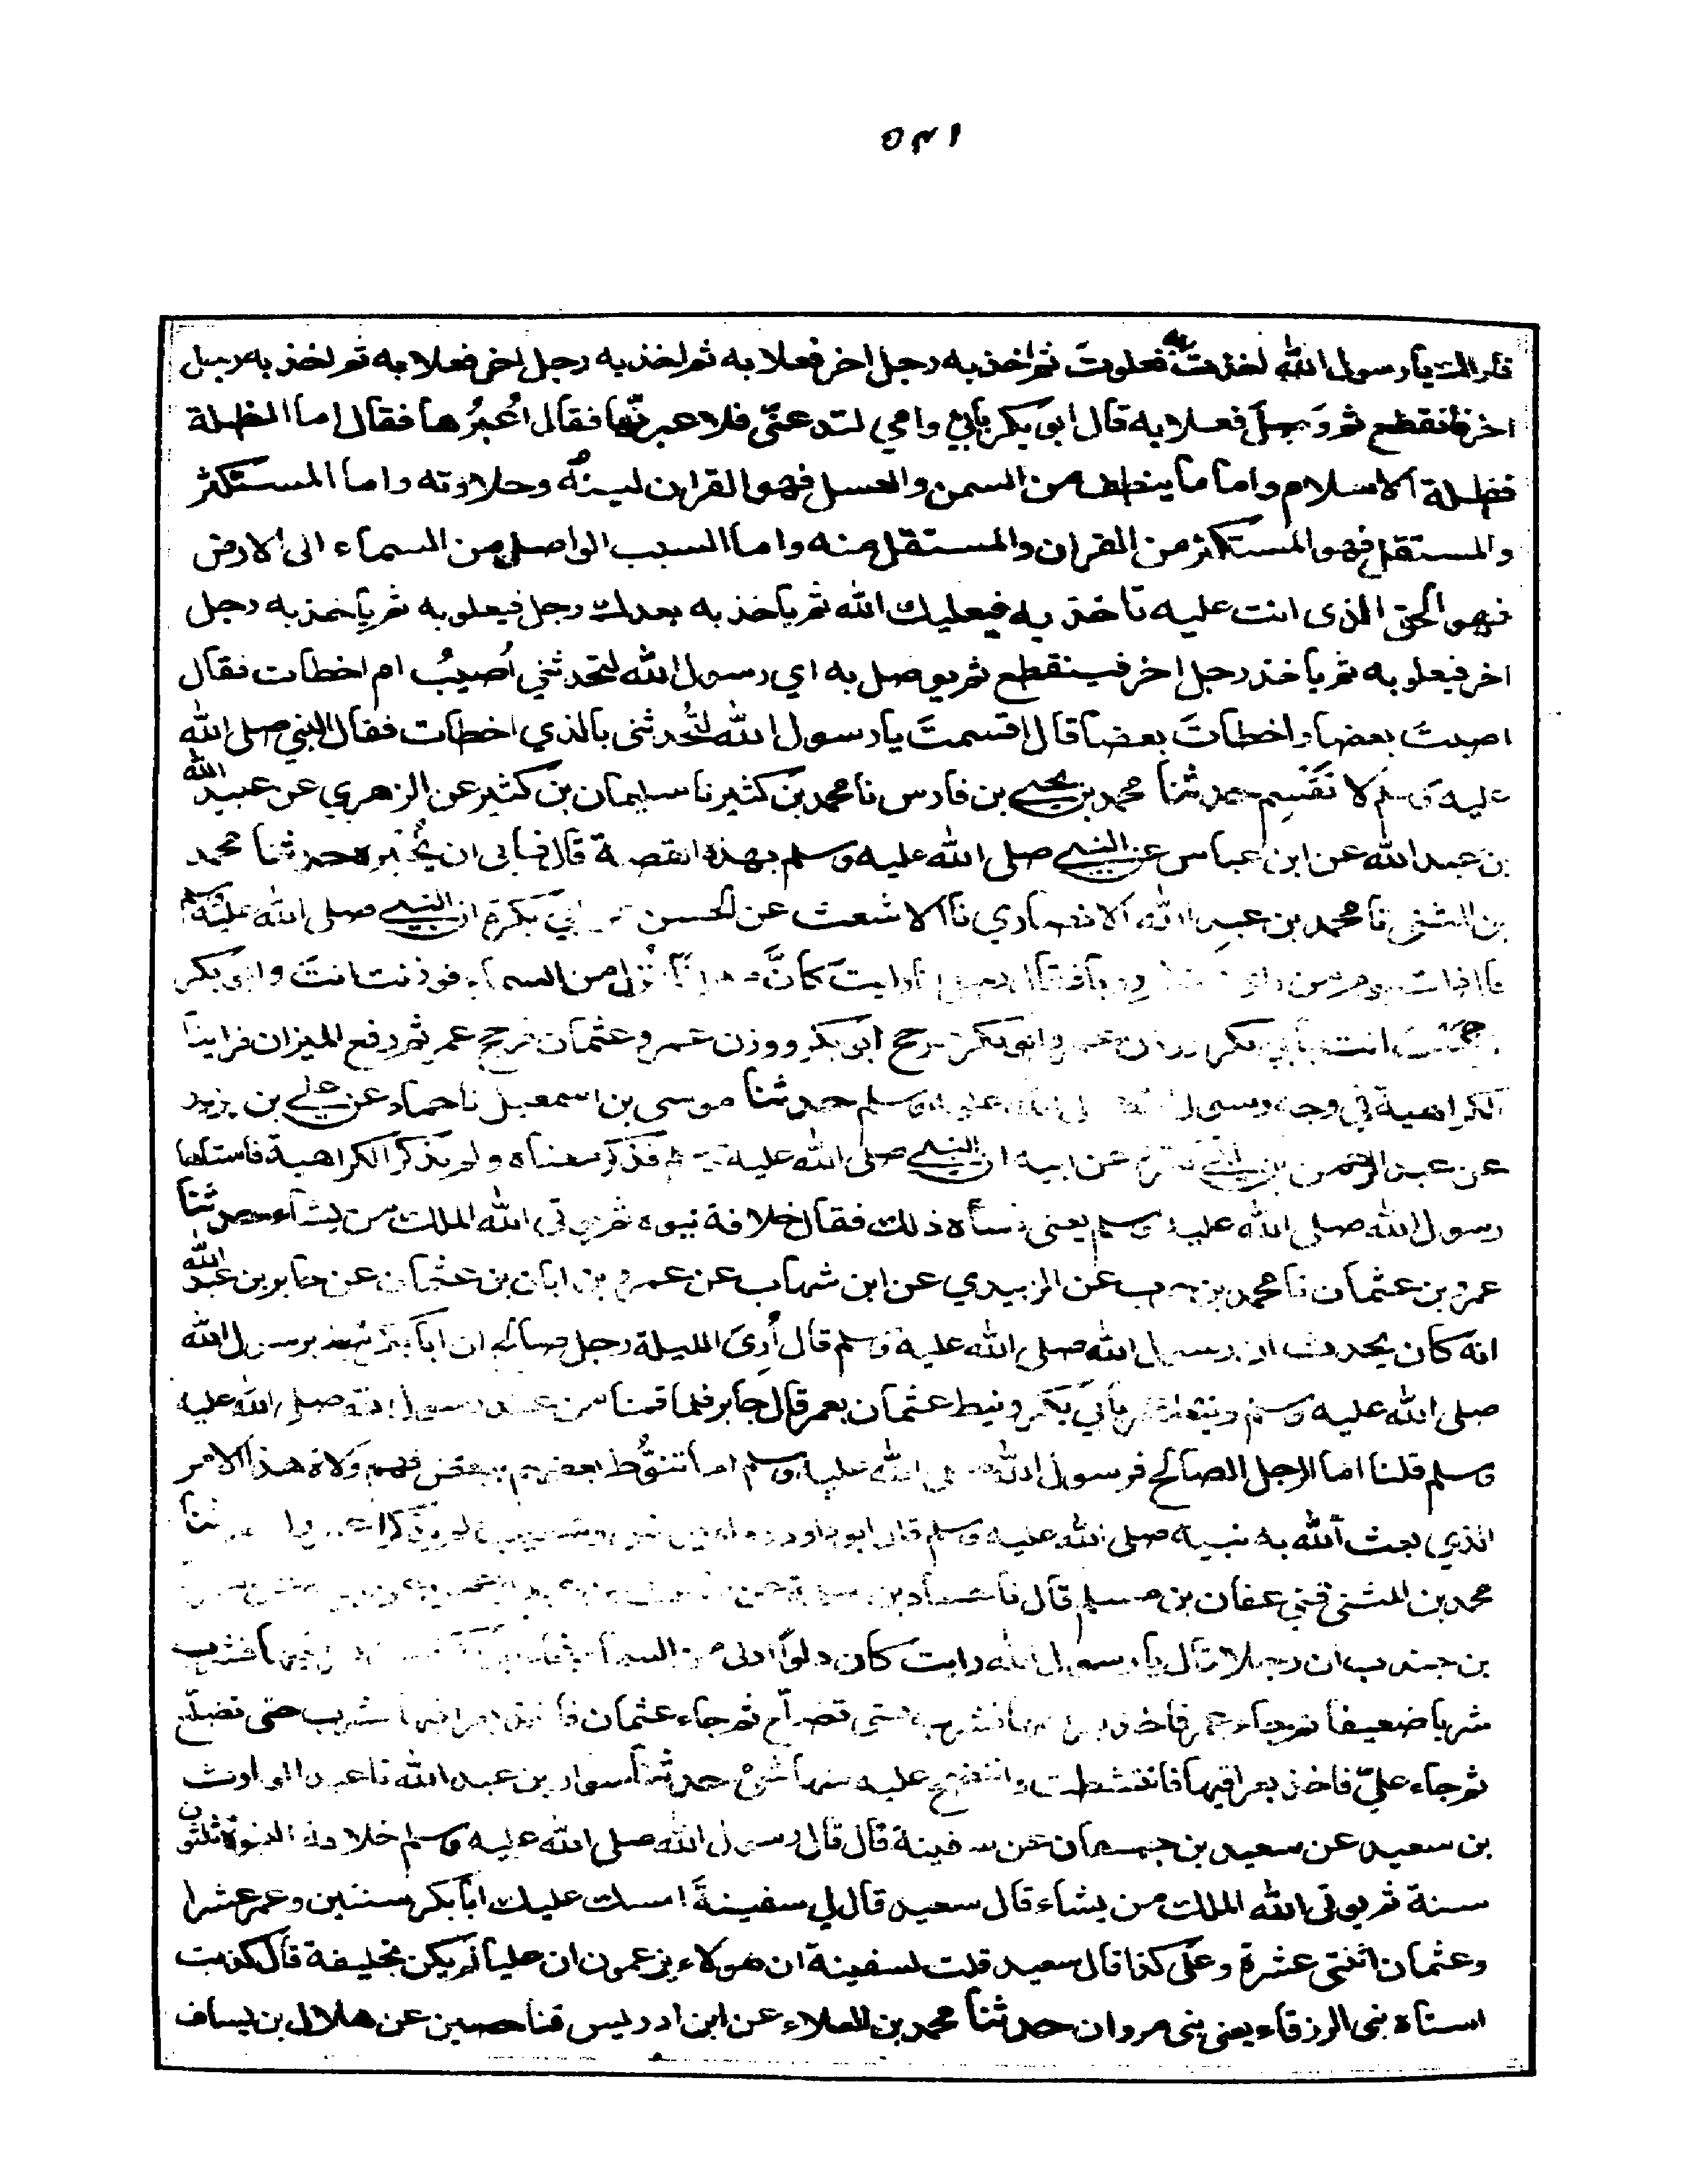 ٥٣١
فاراك يا رسول الله اخذت به فعلوت ثم اخذ به رجل اخر فعلا به ثم اخذ به رجل اخر فعلا به ثم اخذ به رجل
اخر فانقطع ثم وصل فعلا به قال ابو بكر بابي وامي لتدعنّي فلاعبرنّها فقال اعبُرها فقال اما الظلة
فظلة الاسلام واما ما ينطف من السمن والعسل فهو القران لينه وحلاوته واما المستكثر
والمستقل فهو المستكثر من القران والمستقل منه واما السبب الواصل من السماء الى الارض
فهو الحق الذى انت عليه تاخذ به فيعليك الله ثم ياخذ به بعدك رجل فيعلو به ثم ياخذ به رجل
اخر فيعلو به ثم ياخذ رجل اخر فينقطع ثم يوصل به اي رسول الله لتحدثني أصبتُ ام اخطات فقال
اصبتَ بعضا واخطاتَ بعضا قال اقسمتَ يا رسول الله لتُحدثنى بالذي اخطات فقال النبي صلى الله
عليه وسلم لا تقسم حدثنا محمد بن يحيى بن فارس نا محمد بن كثير نا سليمان بن كثير عن الزهري عن عبيد الله
بن عبد الله عن ابن عباس عن النبي صلى الله عليه وسلم بهذه القصة قال فابى ان يُخبره حدثنا محمد
بن المثنى نا محمد بن عبد الله الانصاري نا الاشعث عن الحسن عن ابي بكرة ان النبي صلى الله عليه وسلم
قال ذات يوم من راى رويا فقال رجل انا رايت كانَّ ميزانًا نُزل من السماء فوزنت انتَ وابو بكر
فرجحتَ انت بابي بكر ووزن عمر وابو بكر فرجح ابو بكر ووزن عمر وعثمان فرجح عمر ثم رفع الميزان فراينا
الكراهية في وجه رسول الله صلى الله عليه وسلم حدثنا موسى بن اسمعيل نا حماد عن علي بن زيد
عن عبد الرحمن بن ابي بكرة عن ابيه ان النبي صلى الله عليه وسلم فذكر معناه ولم يذكر الكراهية فاستاءلها
رسول الله صلى الله عليه وسلم يعنى فساءه ذلك فقال خلافة نبوة ثم يوتى الله الملك من يشاء حدثنا
عمرو بن عثمان نا محمد بن حرب عن الزبيدي عن ابن شهاب عن عمرو بن ابان بن عثمان عن جابر بن عبد الله
انه كان يحدث ان رسول الله صلى الله عليه وسلم قال أُرِىَ الليلة رجل صالح ان ابا بكر نيط برسول الله
صلى الله عليه وسلم ونيط عمر بابي بكر ونيط عثمان بعمر قال جابر فلما قمنا من عند رسول الله صلى الله عليه
وسلم قلنا اما الرجل الصالح فرسول الله صلى الله عليه وسلم اما تنوُّط بعضهم ببعض فهم ولاة هذا الامر
الذي بعث الله به نبيه صلى الله عليه وسلم قال ابو داود رواه يونس وشعيب لم يذكرا عمروا حدثنا
محمد بن المثنى قثني عفان بن مسلم قال نا حماد بن سلمة عن
بن جندب ان رجلا قال يا رسول الله رايت كان دلوًا دلى من السماء فجاء فشرب
شربا ضعيفا ثم جاء عمر فاخذ بعراقيها فشرب حتى تضلّع ثم جاء عثمان فاخذ بعراقيها فشرب حتى تضلّع
ثم جاء عليّ فاخذ بعراقيها فانتشطت وانتضح عليه منها شئ حدثنا سوار بن عبد الله نا عبد الوارث
بن سعيد عن سعيد بن جمهان عن سفينة قال قال رسول الله صلى الله عليه وسلم خلافة النبوة ثلثون
سنة ثم يوتى الله الملك من يشاء قال سعيد قال لي سفينةَ امسك عليك ابا بكر سنتين وعمر عشرا
وعثمان اثنتى عشرة وعلى كذا قال سعيد قلت لسفينة ان هولاء يزعمون ان عليا لم يكن بخليفة قال كذبت
استاه بنى الزرقاء يعنى بنى مروان حدثنا محمد بن العلاء عن ابن ادريس قنا حصين عن هلال بن يساف